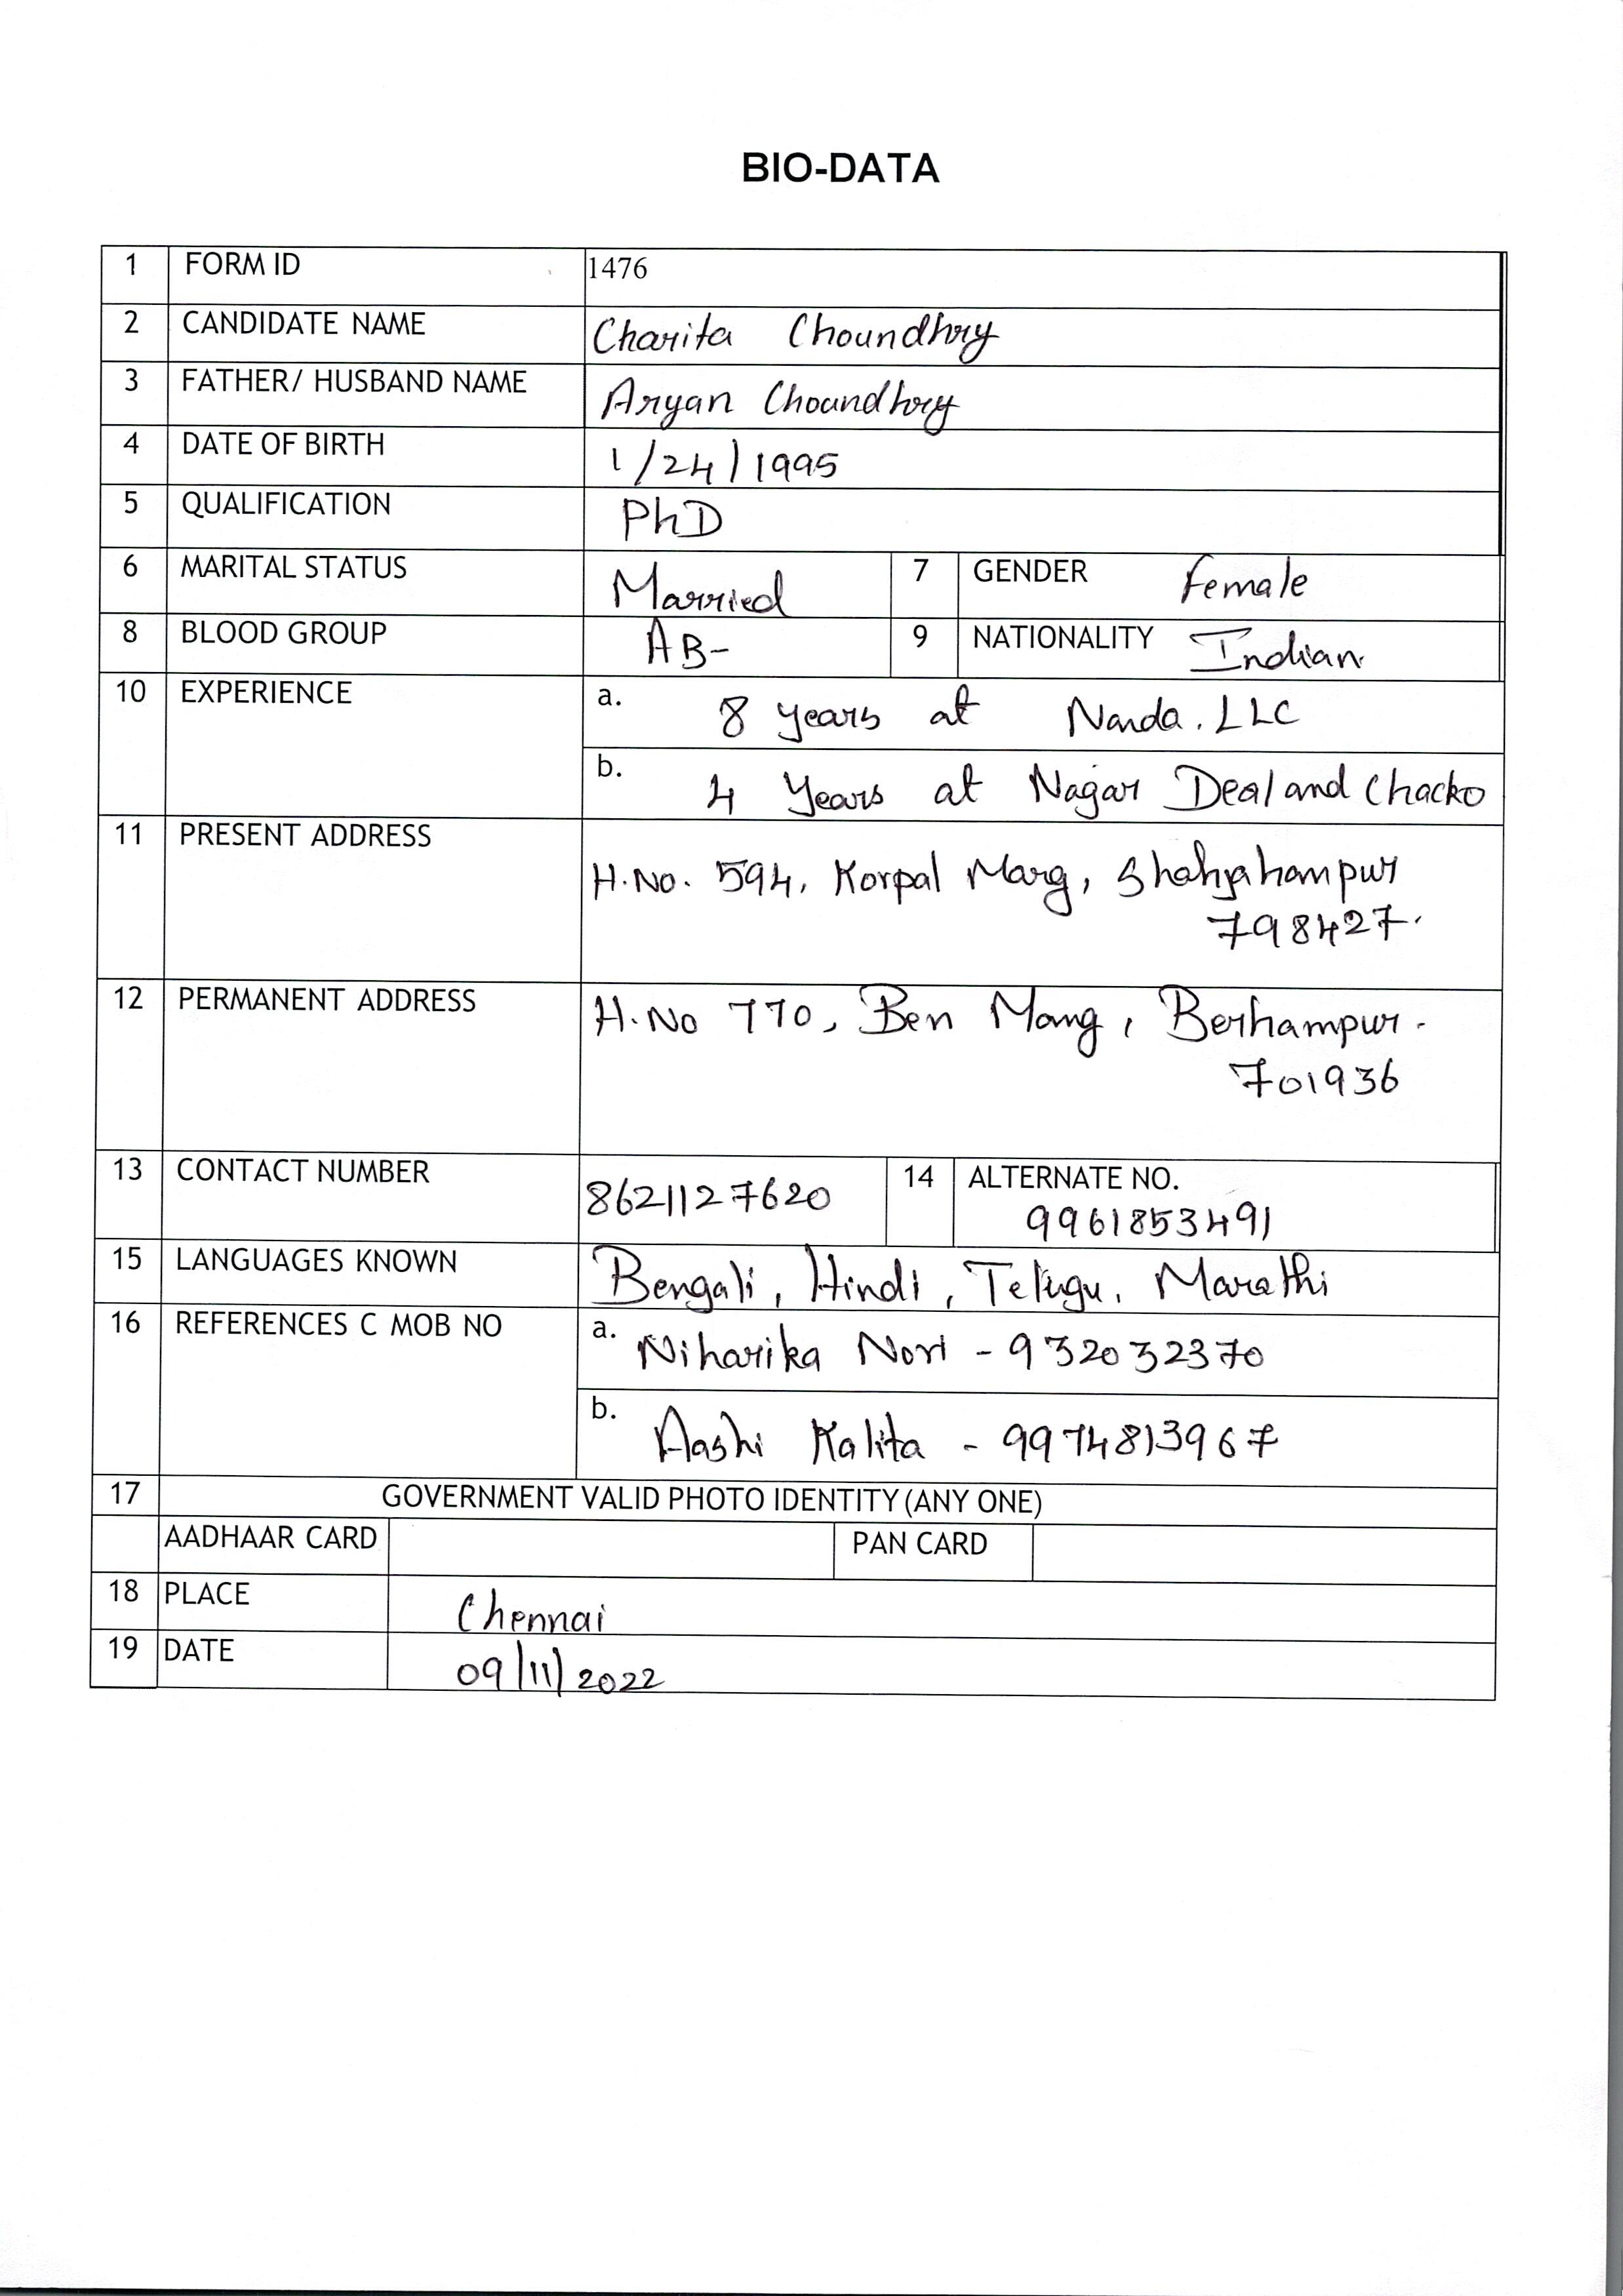 BIO-DATA
1 FORM ID 1476
2 CANDIDATE NAME Charita Choundhry
3 FATHER/ HUSBAND NAME Aryan Choundhry
4 DATE OF BIRTH 1/24/1995
5 QUALIFICATION PhD
6 MARITAL STATUS Married 7 GENDER Female
8 BLOOD GROUP AB- 9 NATIONALITY Indian
10 EXPERIENCE a. 8 years at Nanda. LLC
b. 4 Years at Nagar Deal and Chacko
11 PRESENT ADDRESS
H.No. 594, Korpal Marg, Shahjahampur
798427.
12 PERMANENT ADDRESS H.No 770, Ben Mang, Berhampur.
701936
13 CONTACT NUMBER 8621127620 14 ALTERNATE NO.
9961853491
15 LANGUAGES KNOWN Bengali, Hindi, Telugu, Marathi
16 REFERENCES C MOB NO a. Niharika Nori - 932032370
b. Aashi Kalita - 9974813967
17 GOVERNMENT VALID PHOTO IDENTITY (ANY ONE)
AADHAAR CARD PAN CARD
18 PLACE Chennai
19 DATE 09/11/2022